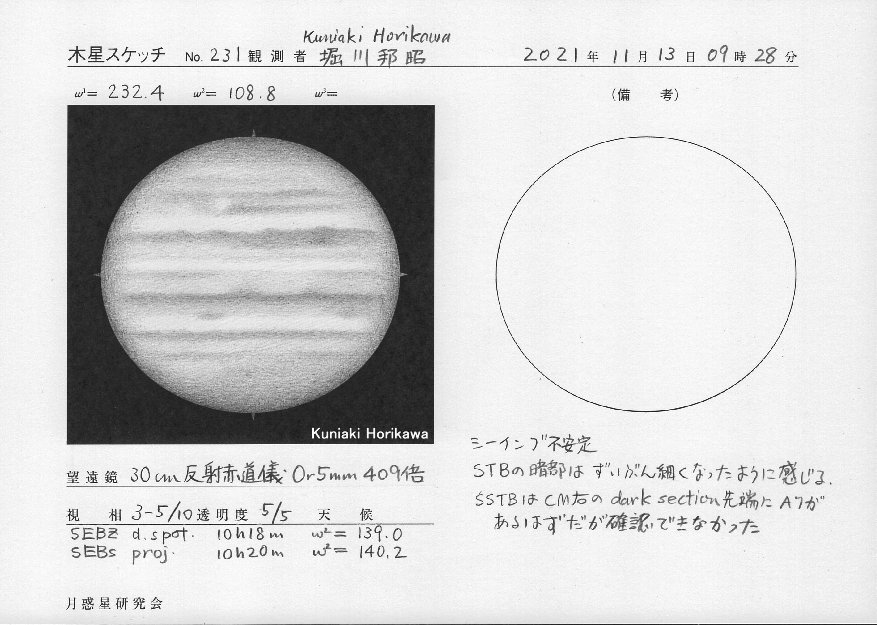 Kuniaki Horikawa
木星スケッチ No. 231 観測者 堀川邦昭 2021年 11月 13日 09時 28分
ω¹= 232.4 ω²= 108.8 ω³=
(備 考)
Kuniaki Horikawa
シーイング不安定
STBの暗部はずいぶん細くなったように感じる.
SSTBはCM右のdark section先端にA7が
あるはずだが確認できなかった
望遠鏡 30cm反射赤道儀 Or5mm 409倍
視 相 3-5/10 透明度 5/5 天 候
SEBZ d.spot. 10h18m ω²= 139.0
SEBs proj. 10h20m ω²= 140.2
月惑星研究会